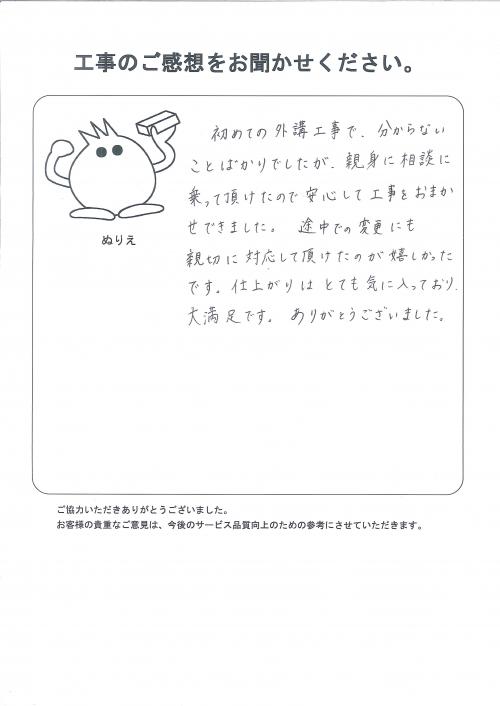 工事のご感想をお聞かせください。
初めての外講工事で、分からない
ことばかりでしたが、親身に相談に
乗って頂けたので安心して工事をおまか
せできました。途中での変更にも
親切に対応して頂けたのが嬉しかった
です。仕上がりはとても気に入っており、
大満足です。ありがとうございました。
ぬりえ
ご協力いただきありがとうございました。
お客様の貴重なご意見は、今後のサービス品質向上のための参考にさせていただきます。